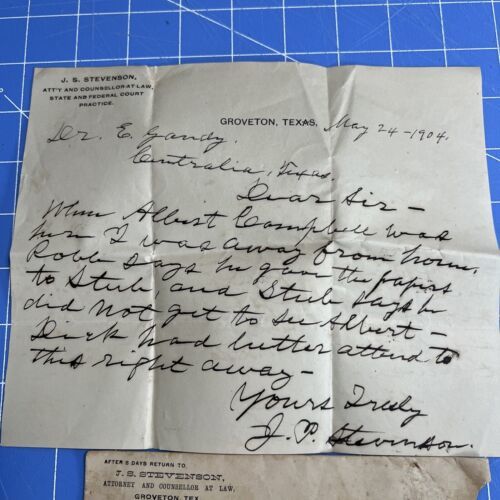 J. S. STEVENSON,
ATT'Y AND COUNSELLOR-AT-LAW,
STATE AND FEDERAL COURT
PRACTICE.
GROVETON, TEXAS, May 24-1904.
Dr. E. Gandy,
Centralia, Texas.
Dear Sir-
When Albert Campbell was
here I was away from home,
Robb says he gave the papers
to Steele and Steele says he
did not get to see Albert-
Dick had better attend to
this right away-
Yours Truly
J. S. Stevenson.
AFTER 5 DAYS RETURN TO
J. S. STEVENSON,
ATTORNEY AND COUNSELLOR AT LAW,
GROVETON, TEX.